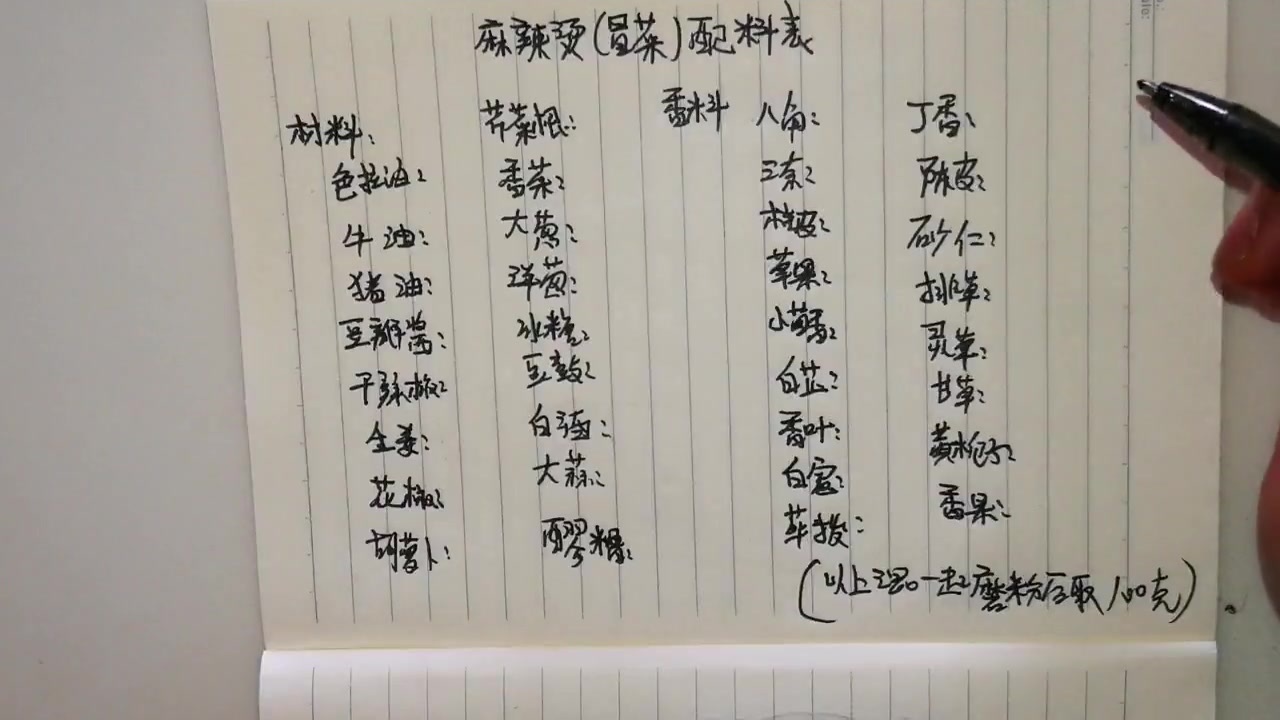 麻辣烫(冒菜)配料表
材料:
色拉油:
牛油:
猪油:
豆瓣酱:
干辣椒:
生姜:
花椒:
胡萝卜:
芹菜根:
香菜:
大葱:
洋葱:
冰糖:
豆豉:
白酒:
大蒜:
醪糟:
香料
八角:
三奈:
桂皮:
草果:
小茴香:
白芷:
香叶:
白寇:
荜拨:
丁香:
陈皮:
砂仁:
排草:
灵草:
甘草:
黄栀子:
香果:
(以上混一起磨粉后取100克)